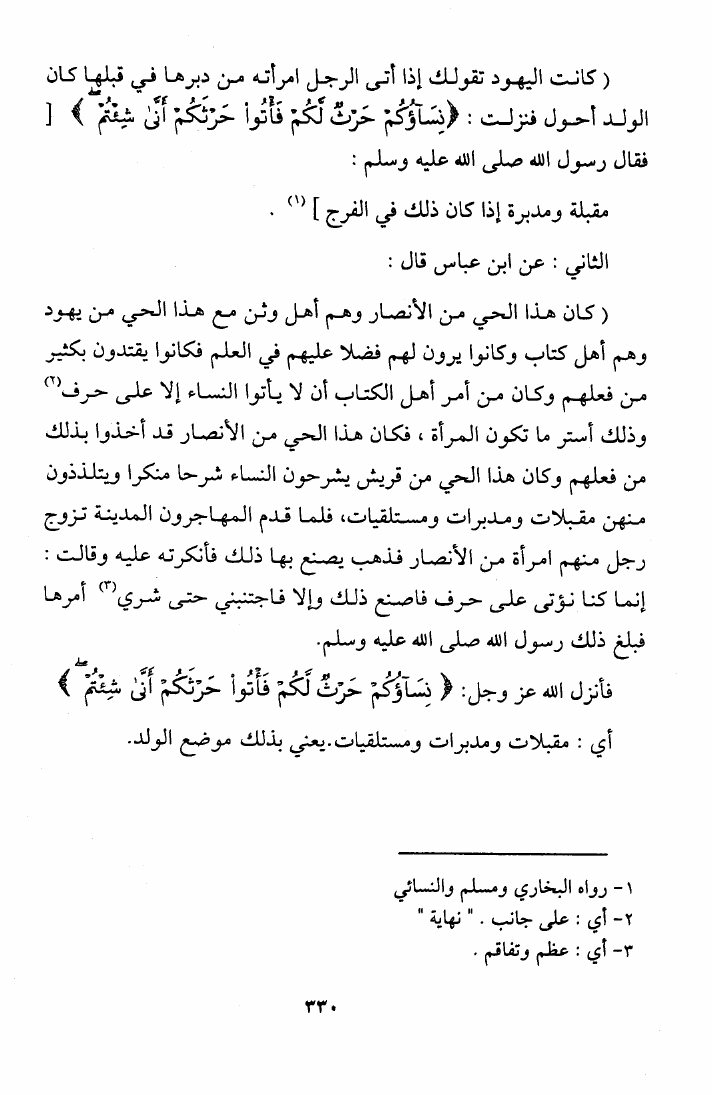 ( كانت اليهود تقولك إذا أتى الرجل امرأته من دبرها في قبلها كان
الولد أحول فنزلت : ﴿نِسَآؤُكُمْ حَرْثٌ لَّكُمْ فَأْتُوا۟ حَرْثَكُمْ أَنَّىٰ شِئْتُمْ ۖ﴾ [
فقال رسول الله صلى الله عليه وسلم :
مقبلة ومدبرة إذا كان ذلك في الفرج ] (١) .
الثاني : عن ابن عباس قال :
( كان هذا الحي من الأنصار وهم أهل وثن مع هذا الحي من يهود
وهم أهل كتاب وكانوا يرون لهم فضلا عليهم في العلم فكانوا يقتدون بكثير
من فعلهم وكان من أمر أهل الكتاب أن لا يأتوا النساء إلا على حرف(٢)
وذلك أستر ما تكون المرأة ، فكان هذا الحي من الأنصار قد أخذوا بذلك
من فعلهم وكان هذا الحي من قريش يشرحون النساء شرحا منكرا ويتلذذون
منهن مقبلات ومدبرات ومستلقيات، فلما قدم المهاجرون المدينة تزوج
رجل منهم امرأة من الأنصار فذهب يصنع بها ذلك فأنكرته عليه وقالت :
إنما كنا نؤتى على حرف فاصنع ذلك وإلا فاجتنبني حتى شري(٣) أمرها
فبلغ ذلك رسول الله صلى الله عليه وسلم.
فأنزل الله عز وجل: ﴿ نِسَآؤُكُمْ حَرْثٌ لَّكُمْ فَأْتُوا۟ حَرْثَكُمْ أَنَّىٰ شِئْتُمْ ۖ﴾
أي : مقبلات ومدبرات ومستلقيات.يعني بذلك موضع الولد.
١- رواه البخاري ومسلم والنسائي
٢- أي : على جانب . " نهاية "
٣- أي : عظم وتفاقم .
٣٣٠